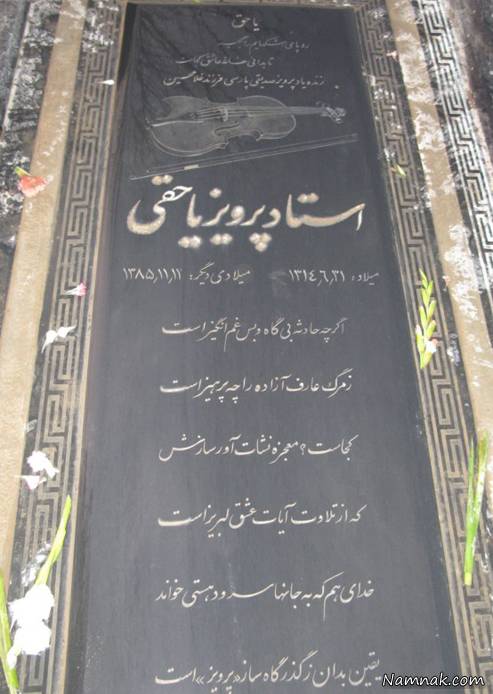 یا حق
زنده یاد پرویز صدیقی پارسی فرزند غلامحسین
استاد پرویز یاحقی
میلاد: ۱۳۱۴,۶,۳۱ میلادی دیگر: ۱۳۸۵,۱۱,۱۱
اگرچه حادثه بی گاه و بس غم انگیز است
ز مرگ عارف آزاده را چه پرهیز است
کجاست؟ معجزه نشات آور سازنش
که از تلاوت آیات عشق لبریز است
خدای هم که به جانها سرود هستی خواند
یقین بدان ز گذرگاه ساز «پرویز» است
Namnak.com